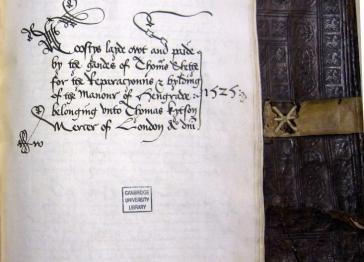 Costys layde owt and payde
by the handes of Thomas Fette
for the Reparacyonns & byldyng
of the Manour of Hengrave 1525
belonging vnto Thomas Kytson
Mercer of London &
CAMBRIDGE
UNIVERSITY
LIBRARY